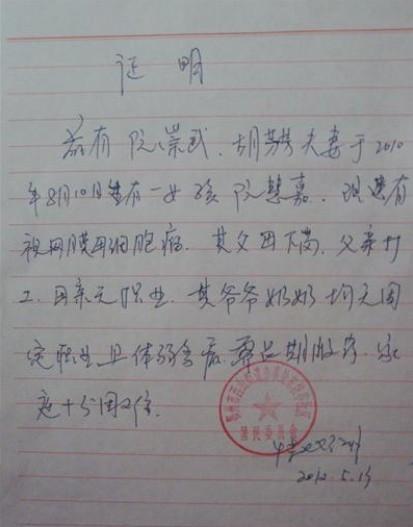 证明
兹有阮崇武、胡芳芳夫妻于2010
年8月10日生有一女孩阮慧嘉. 现患有
视网膜母细胞瘤. 其父母下岗, 父亲打
工. 母亲无职业. 其爷爷奶奶均无固
定职业且体弱多病需长期服药. 家
庭十分困难.
居民委员会
2012.5.15